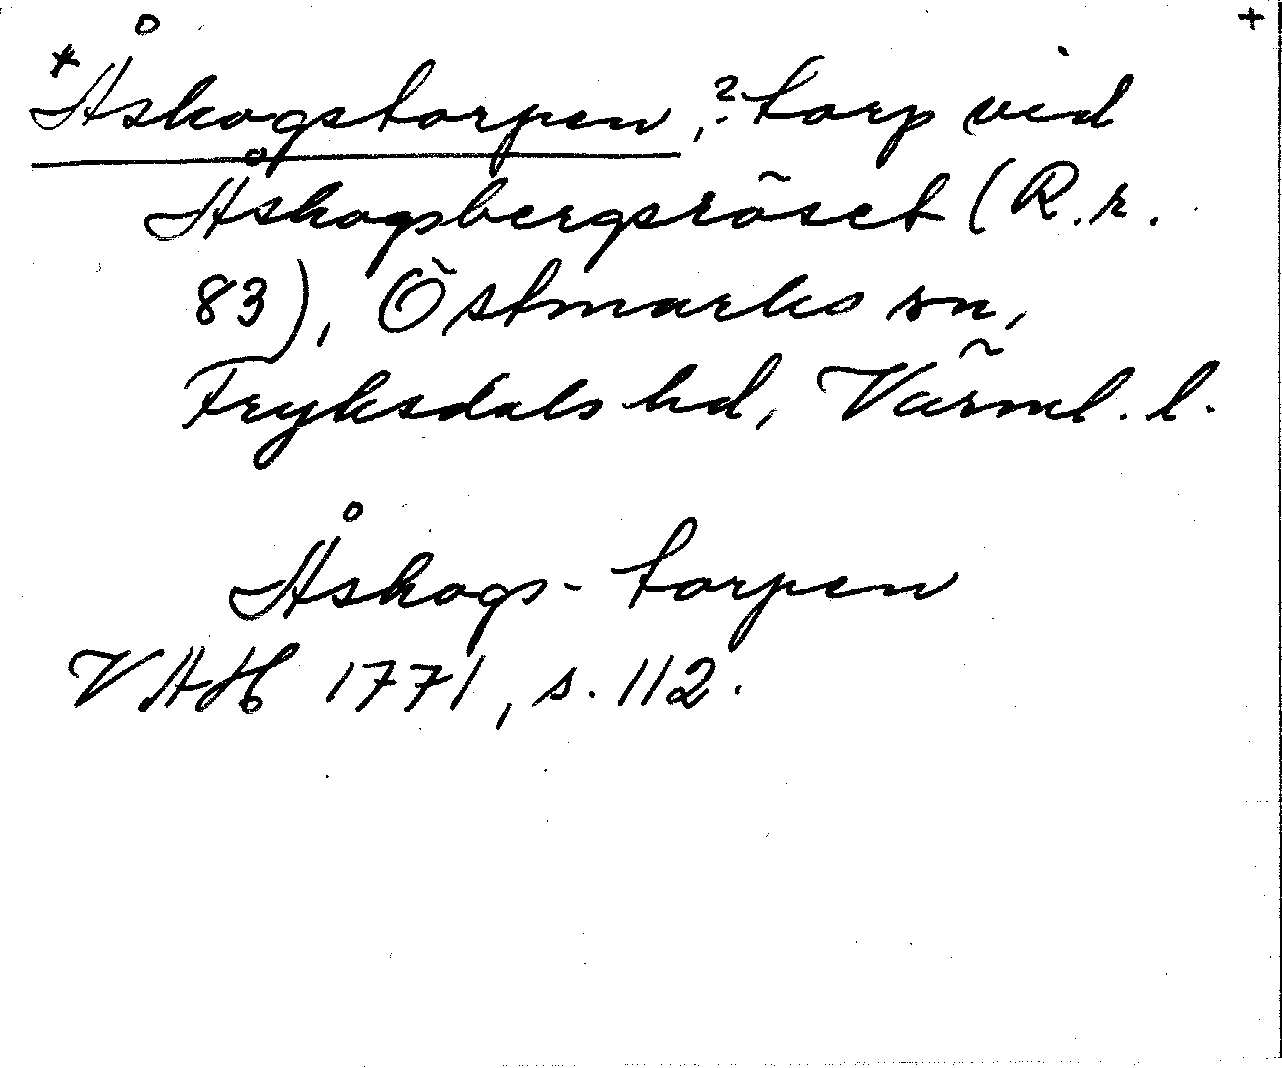 +
*Åskogstorpen, ?torp vid
Åskogsbergsröset (R.r.
83), Östmarks sn,
Fryksdals hd, Värml. l.
Åskogs-torpen
VAH 1771, s. 112.